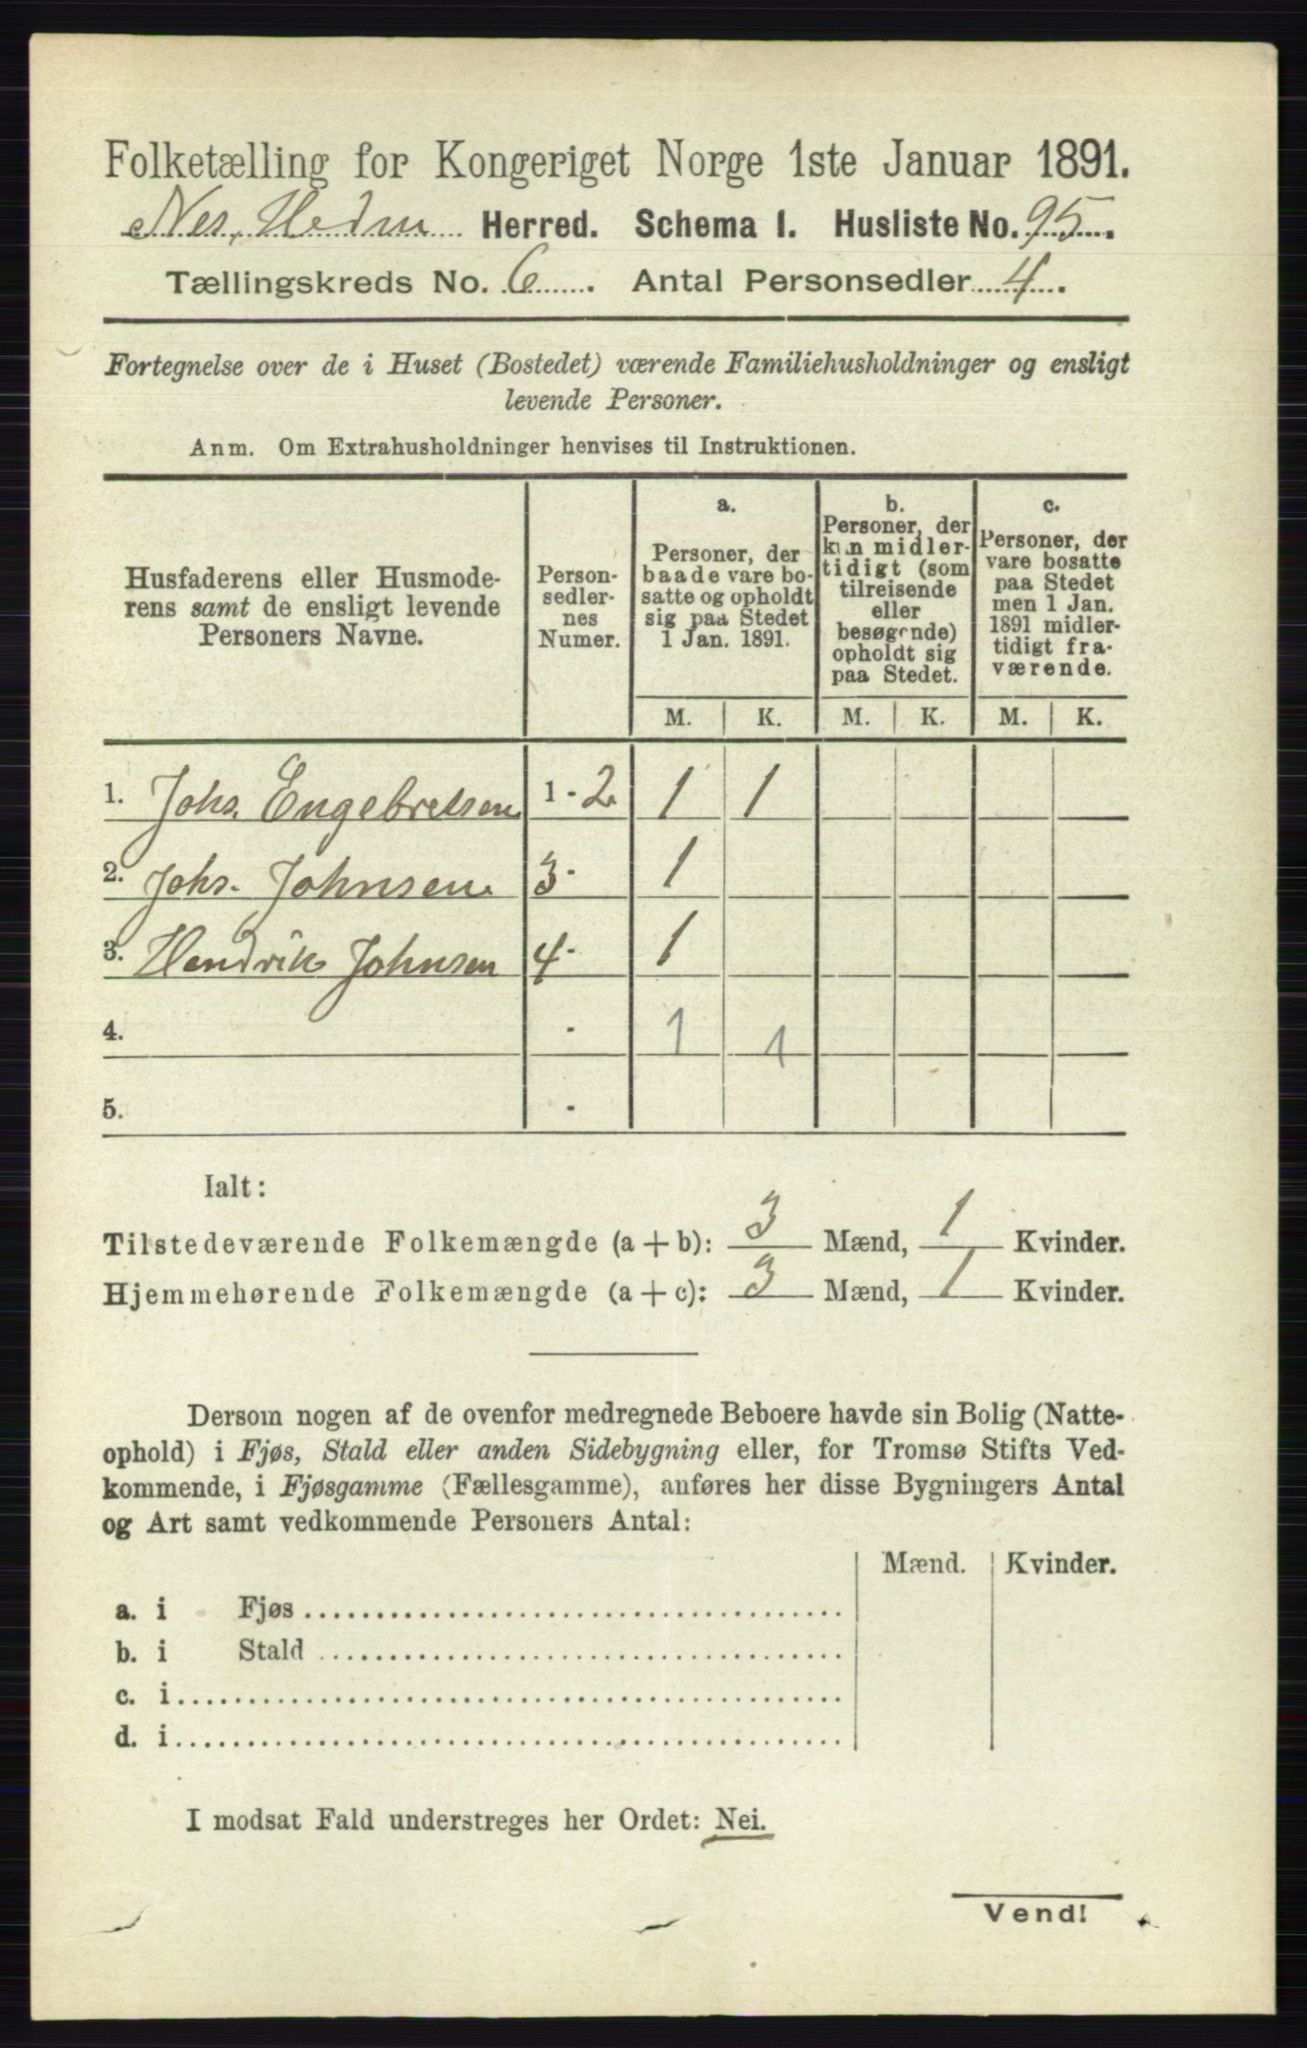 Folketælling for Kongeriget Norge 1ste Januar 1891.
Nes, Hedm Herred. Schema 1. Husliste No. 95.
Tællingskreds No. 6. Antal Personsedler 4.
Fortegnelse over de i Huset (Bostedet) værende Familiehusholdninger og ensligt
levende Personer.
Anm. Om Extrahusholdninger henvises til Instruktionen.
Husfaderens eller Husmode-
rens samt de ensligt levende
Personers Navne.
Person-
sedler-
nes
Numer.
a.
Personer, der
baade vare bo-
satte og opholdt
sig paa Stedet
1 Jan. 1891.
b.
Personer, der
kun midler-
tidigt (som
tilreisende
eller
besøgende)
opholdt sig
paa Stedet.
c.
Personer, der
vare bosatte
paa Stedet
men 1 Jan.
1891 midler-
tidigt fra-
værende.
M. K. M. K. M. K.
1. Johs. Engebretsen 1 - 2 1 1
2. Johs. Johnsen 3 - 1
3. Hendrik Johnsen 4 - 1
4. - 1 1
5. -
Ialt:
Tilstedeværende Folkemængde (a + b): 3 Mænd, 1 Kvinder.
Hjemmehørende Folkemængde (a + c): 3 Mænd, 1 Kvinder.
Dersom nogen af de ovenfor medregnede Beboere havde sin Bolig (Natte-
ophold) i Fjøs, Stald eller anden Sidebygning eller, for Tromsø Stifts Ved-
kommende, i Fjøsgamme (Fællesgamme), anføres her disse Bygningers Antal
og Art samt vedkommende Personers Antal:
Mænd. Kvinder.
a. i Fjøs
b. i Stald
c. i
d. i
I modsat Fald understreges her Ordet: Nei.
Vend!